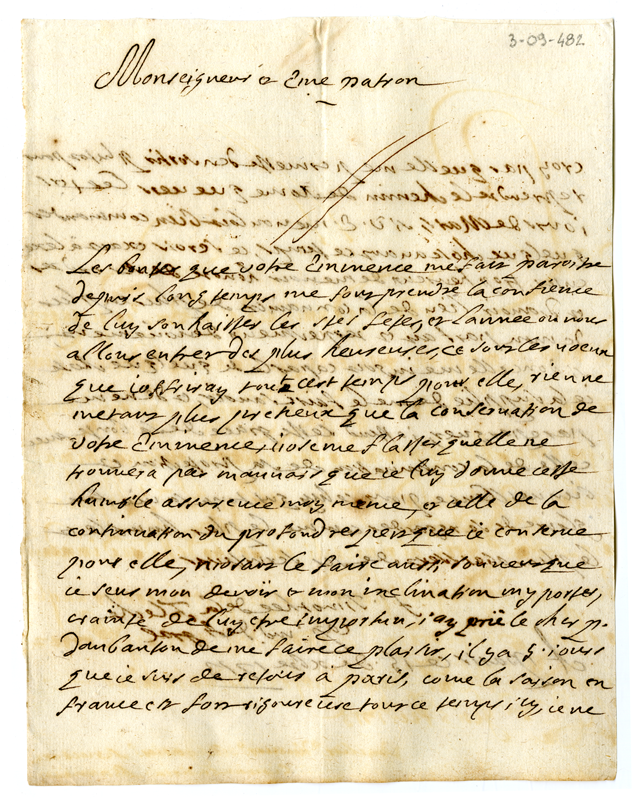 3-09-482
Monseigneur & Eme patron
Les bontes que votre Eminence me fait paroitre
depuis long temps me font prendre la confience
de luy souhaitter les stes festes, et l'année ou nous
allons entrer des plus heureuses, ce sont les voeux
que i offriray tout cest temps pour elle, rien ne
metant plus pretieux que la conservation de
votre Eminence, iose me flatter quelle ne
trouvera pas mauvais que ie luy donne cette
humble assurence moy meme, et celle de la
continuation du profond respect que ie conserve
pour elle, nosant le faire aussi souvent que
ie seus mon devoir & mon inclination my porter,
crainte de luy etre importun, i ay prié le cher p.
Doubanton de me faire ce plaisir, il y a 5 iours
que ie suis de retour à paris, come la saison en
france est fort rigoureuse tout ce temps icy, ie ne